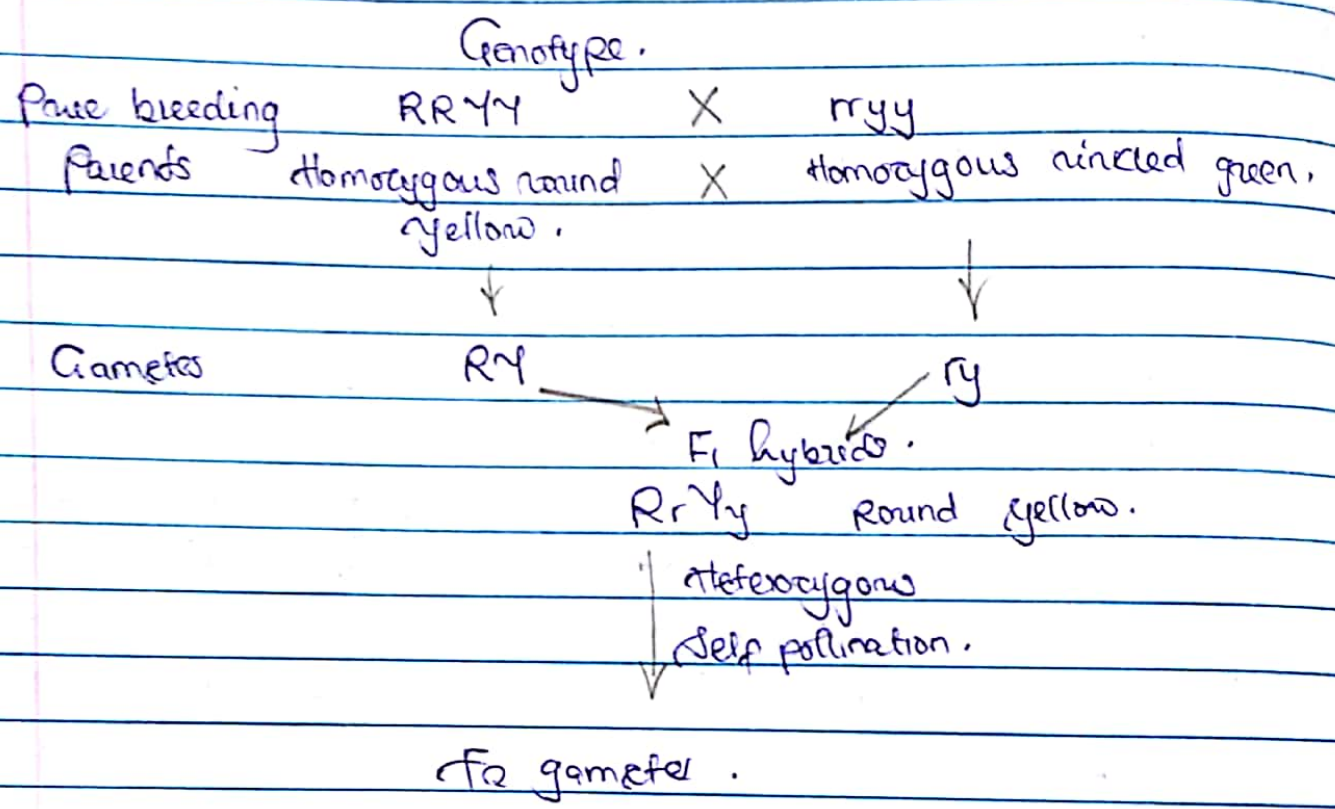 Genotype.
Pure breeding RRYY X rryy
Parents Homozygous round X Homozygous rinkled green.
yellow.
Gametes RY ry
F1 hybrids.
RrYy Round yellow.
Heterozygous
Self pollination.
F2 gametes.